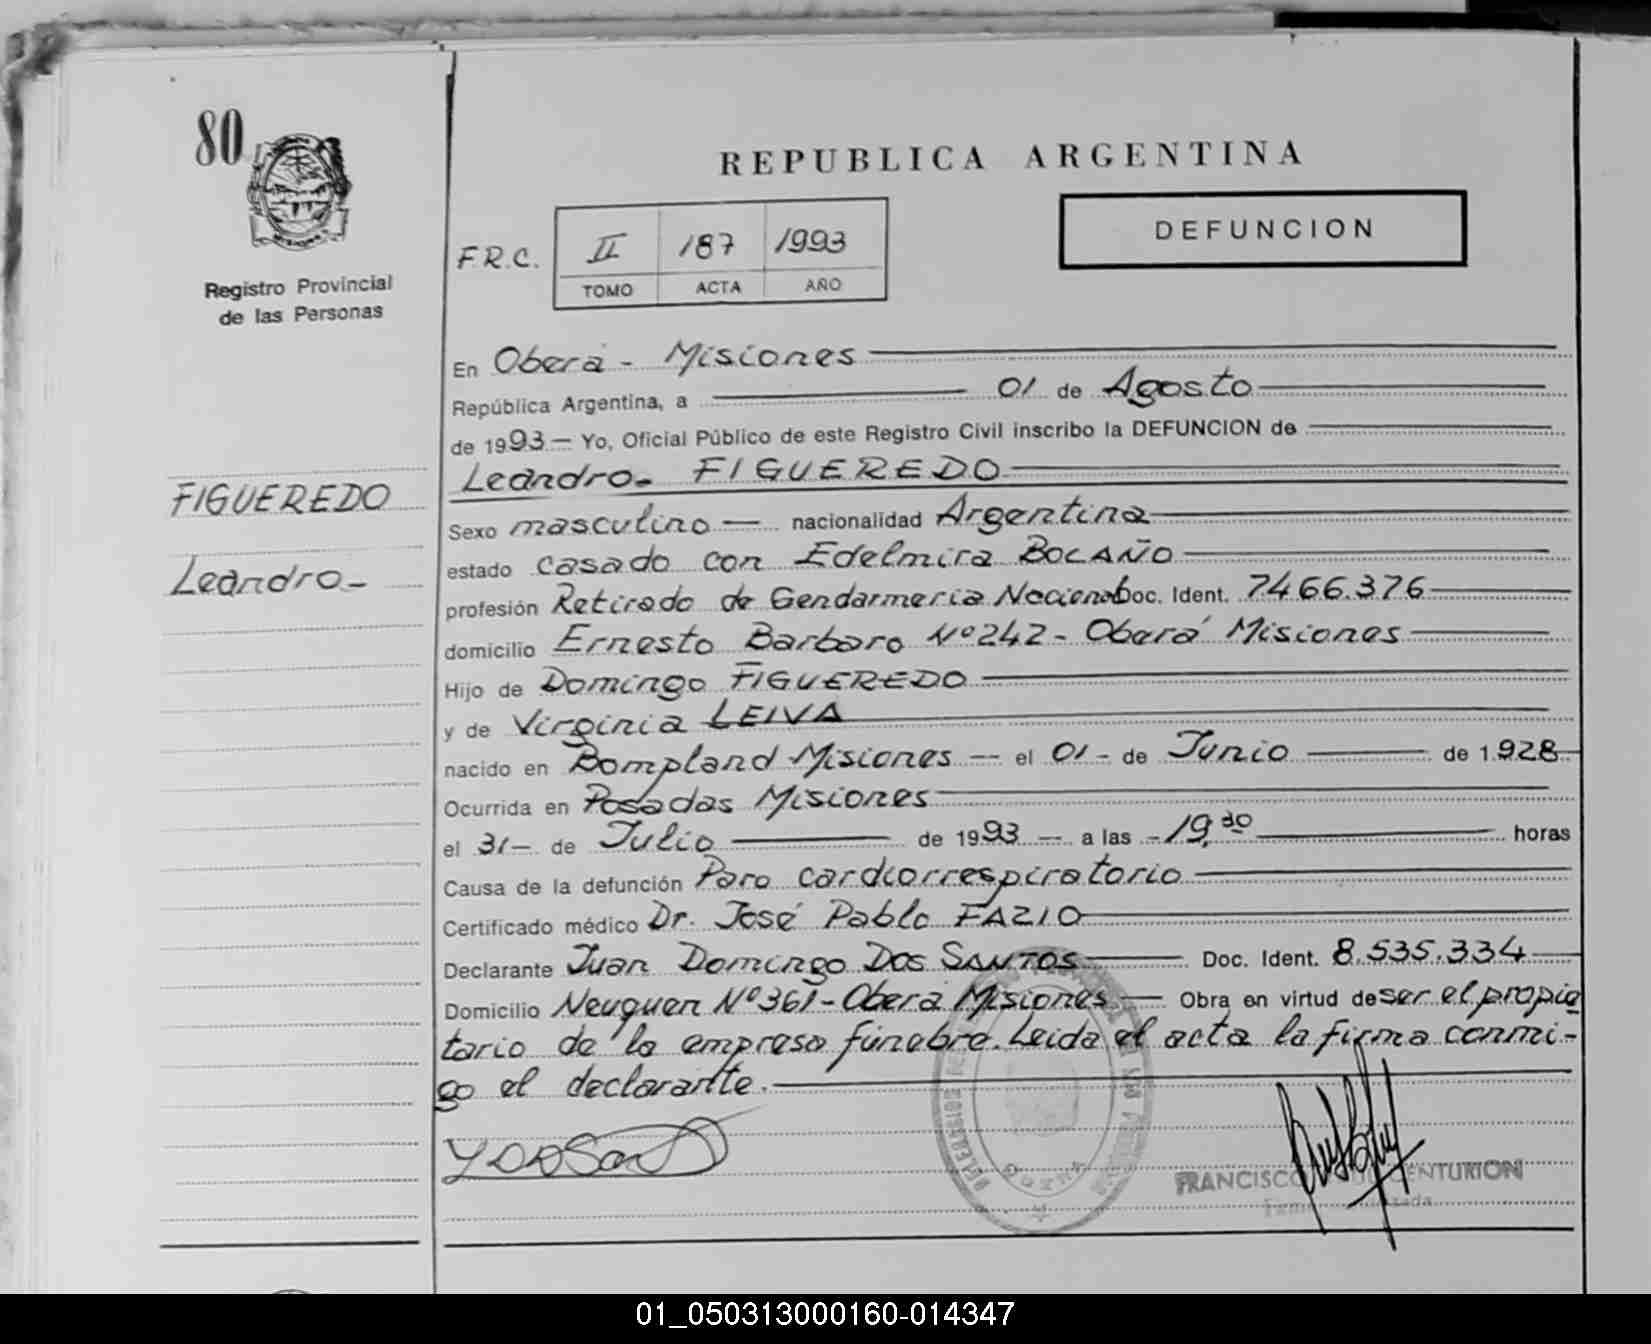 80
REPUBLICA ARGENTINA
DEFUNCION
F.R.C. II 187 1993
TOMO ACTA AÑO
MISIONES
Registro Provincial
de las Personas
En Oberá - Misiones
República Argentina, a 01 de Agosto
de 1993 - Yo, Oficial Público de este Registro Civil inscribo la DEFUNCION de
Leandro - FIGUEREDO
FIGUEREDO
Leandro -
Sexo masculino - nacionalidad Argentina
estado casado con Edelmira BOLAÑO
profesión Retirado de Gendarmeria Nacional Doc. Ident. 7466.376
domicilio Ernesto Barbaro Nº 242 - Oberá Misiones
Hijo de Domingo FIGUEREDO
y de Virginia LEIVA
nacido en Bompland - Misiones - el 01 - de Junio de 1.928
Ocurrida en Posadas Misiones
el 31 - de Julio de 1993 - a las - 19,30 horas
Causa de la defunción Paro cardiorrespiratorio
Certificado médico Dr. José Pablo FAZIO
Declarante Juan Domingo DOS SANTOS Doc. Ident. 8.535.334
Domicilio Neuquen Nº 361 - Oberá Misiones - Obra en virtud de ser el propie
tario de la empresa fúnebre. Leida el acta la firma conmi-
go el declarante.
FRANCISCO CENTURION
01_050313000160-014347